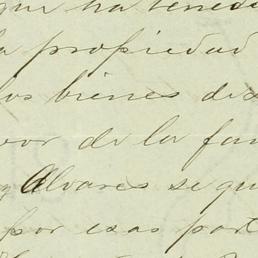 que ha tenido
la propiedad
los bienes de
vor de la fam
Alvares se qu
por esas part